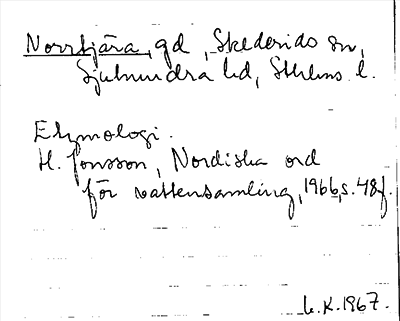 Norrtjära, gd, Skederids sn,
Sjuhundra hd, Sthlms l.
Etymologi.
H. Jonsson, Nordiska ord
för vattensamling, 1966, s. 48f.
L.K. 1967.